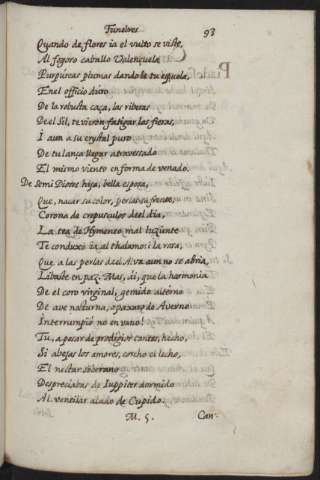 Funebres. 93
Quando de flores ia el vulto se viste,
Al fogoso caballo Valençuela
Purpureas plumas dando le tu espuela,
En el officio duro
De la robusta caça, las riberas
De el Sil, te vieron fatigar las fieras,
I aun a su crystal puro
De tu lança llegar atravesado
El mismo viento en forma de venado.
De Semi Diotes hija, bella esposa,
Que, nacar su color, perlas su frente,
Corona de crepusculos de el dia,
La tea de Hymeneo mal luziente
Te conduxo ia al thalamo: i la rosa,
Que a las perlas de el Alva aun no se abria,
Libaste en paz. Mas, ái, que la harmonia
De el coro virginal, gemido alterno
De ave nocturna, o paxaro de Averno
Interrumpió no en vano!
Tu, a pesar de prodigios tantos, hecho,
Si abejas los amores, corcho el lecho,
El nectar soberano
Despreciabas de Iuppiter dormido
Al ventilar alado de Cupido.
M. 5. Can-